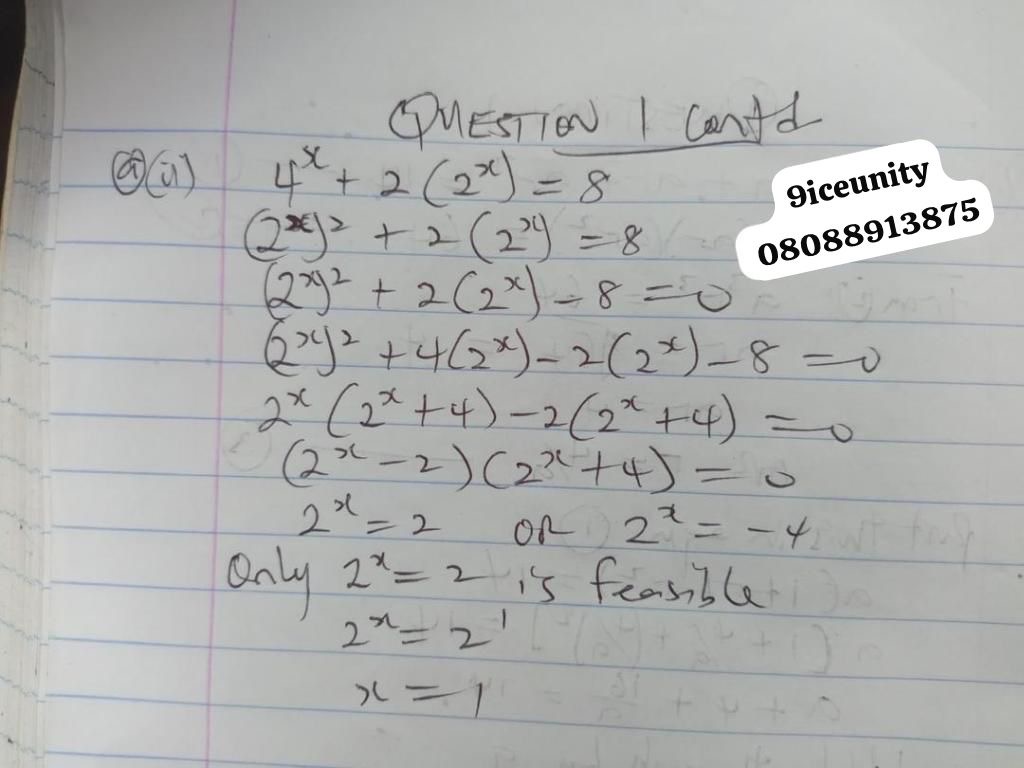 QUESTION 1 Cont'd
9iceunity
08088913875
(a)(ii) 4^x + 2(2^x) = 8
(2^x)^2 + 2(2^x) = 8
(2^x)^2 + 2(2^x) - 8 = 0
(2^x)^2 + 4(2^x) - 2(2^x) - 8 = 0
2^x(2^x + 4) - 2(2^x + 4) = 0
(2^x - 2)(2^x + 4) = 0
2^x = 2 OR 2^x = -4
Only 2^x = 2 is feasible
2^x = 2^1
x = 1